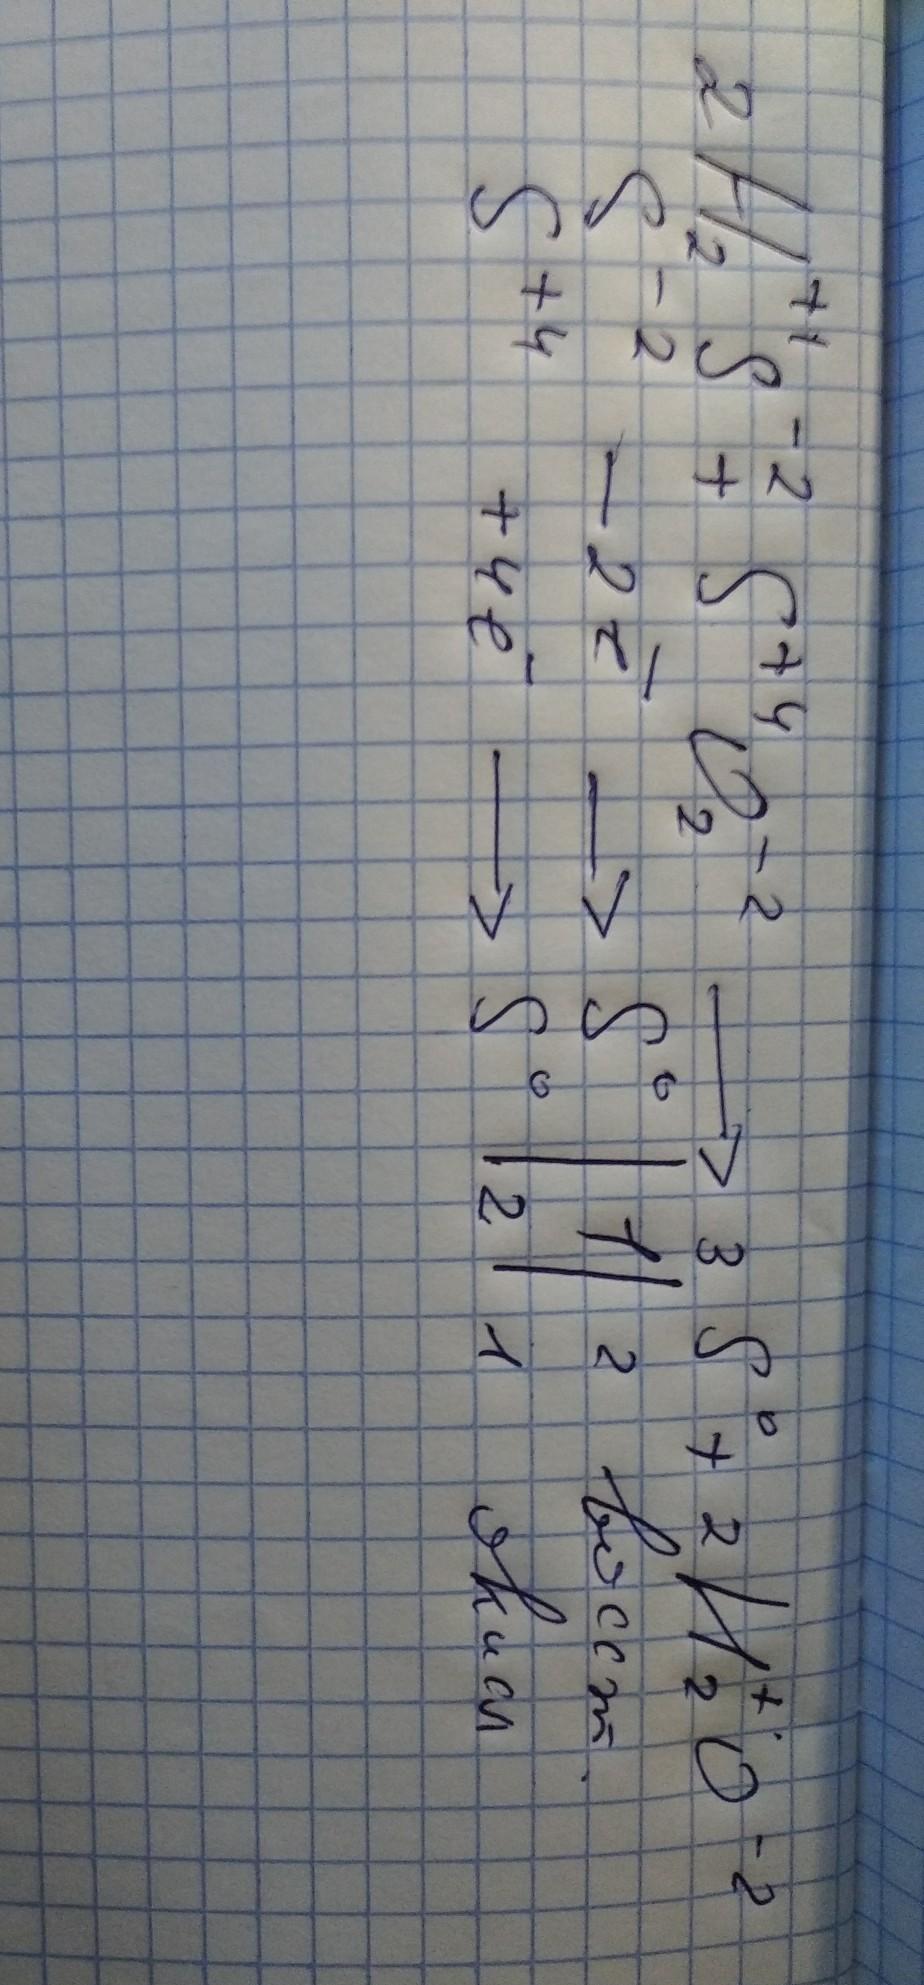 2H₂⁺¹S⁻² + S⁺⁴O₂⁻² → 3S⁰ + 2H₂⁺¹O⁻²
S⁻² − 2e⁻ → S⁰ | 1 | 2 восст.
S⁺⁴ + 4e⁻ → S⁰ | 2 | 1 окисл